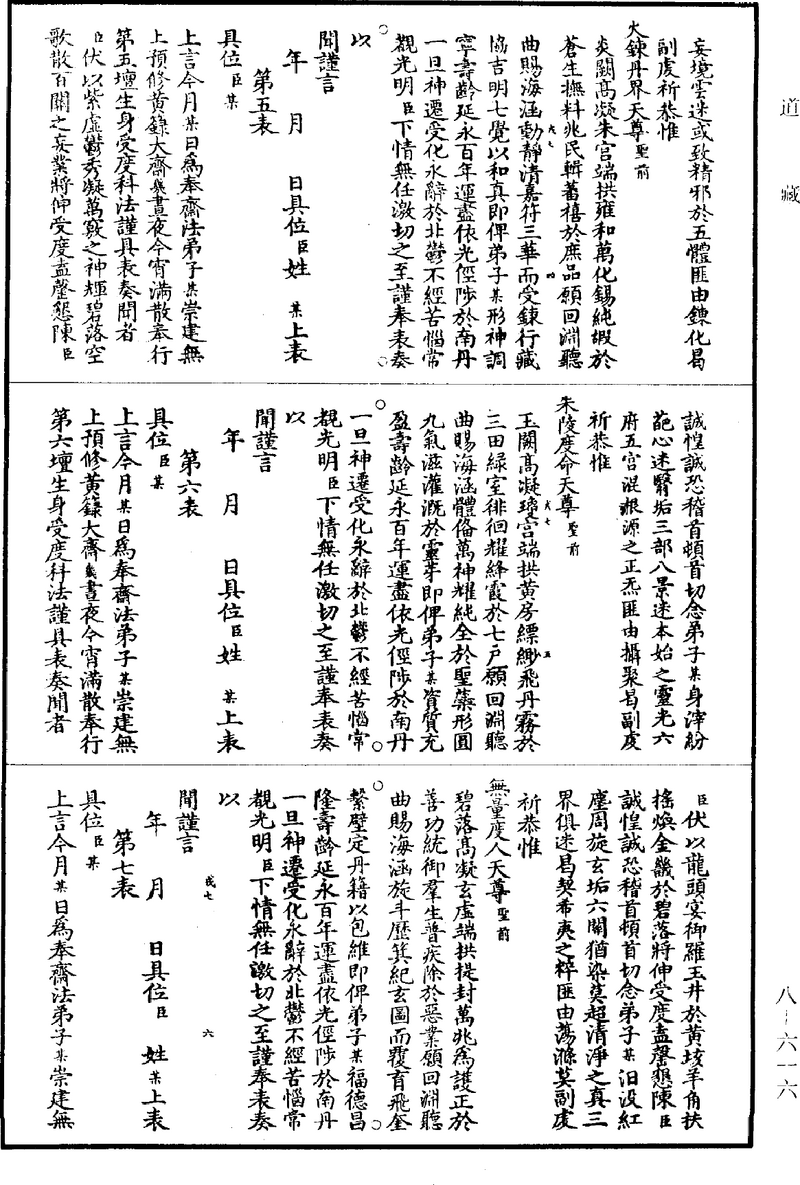 道藏
妄境雲迷或致精邪於五體匪由鍊化曷
副虔祈恭惟
火鍊丹界天尊聖前
炎闕高凝朱宮端拱雍和萬化錫純嘏於
蒼生撫料兆民輯蕃禧於庶品願回淵聽
曲賜海涵動靜清嘉符三華而受鍊行藏
協吉明七覺以和真即俾弟子某形神調
寧壽齡延永百年運盡依光徑陟於南丹
一旦神遷受化永辭於北酆不經苦惱常
覩光明臣下情無任激切之至謹奉表奏
以
聞謹言
年 月 日具位臣姓 某上表
第五表
具位臣某
上言今月某日為奉齋法弟子某崇建無
上預修黃籙大齋幾晝夜今宵滿散奉行
第五壇生身受度科法謹具表奏聞者
臣伏以紫虛鬱秀凝萬竅之神輝碧落空
歌散百關之妄業將伸受度盍罄懇陳臣
誠惶誠恐稽首頓首切念弟子某身滓紛
葩心迷腎垢三部八景迷本始之靈光六
府五宮混根源之正炁匪由攝聚曷副虔
祈恭惟
朱陵度命天尊聖前
玉闕高凝瓊宮端拱黃房縹緲飛丹霧於
三田綠室徘徊耀絳霞於七戶願回淵聽
曲賜海涵體備萬神耀純全於聖藥形圓
九氣滋灌溉於靈芽即俾弟子某資質充
盈壽齡延永百年運盡依光徑陟於南丹
一旦神遷受化永辭於北酆不經苦惱常
覩光明臣下情無任激切之至謹奉表奏
以
聞謹言
年 月 日具位臣姓 某上表
第六表
具位臣某
上言今月某日為奉齋法弟子某崇建無
上預修黃籙大齋幾晝夜今宵滿散奉行
第六壇生身受度科法謹具表奏聞者
臣伏以龍頭宴御羅玉井於黃垓羊角扶
搖煥金畿於碧落將伸受度盍罄懇陳臣
誠惶誠恐稽首頓首切念弟子某汩沒紅
塵周旋玄垢六關猶染莫超清淨之真三
界俱迷曷契希夷之粹匪由蕩滌莫副虔
祈恭惟
無量度人天尊聖前
碧落高凝玄虛端拱提封萬兆為護正於
善功統御群生普疾除於惡業願回淵聽
曲賜海涵旋斗歷箕紀玄圖而覆育飛奎
繫壁定丹籍以包維即俾弟子某福德昌
隆壽齡延永百年運盡依光徑陟於南丹
一旦神遷受化永辭於北酆不經苦惱常
覩光明臣下情無任激切之至謹奉表奏
以
聞謹言
戎七 六
年 月 日具位臣 姓某上表
第七表
具位臣某
上言今月某日為奉齋法弟子某崇建無
八—六一六